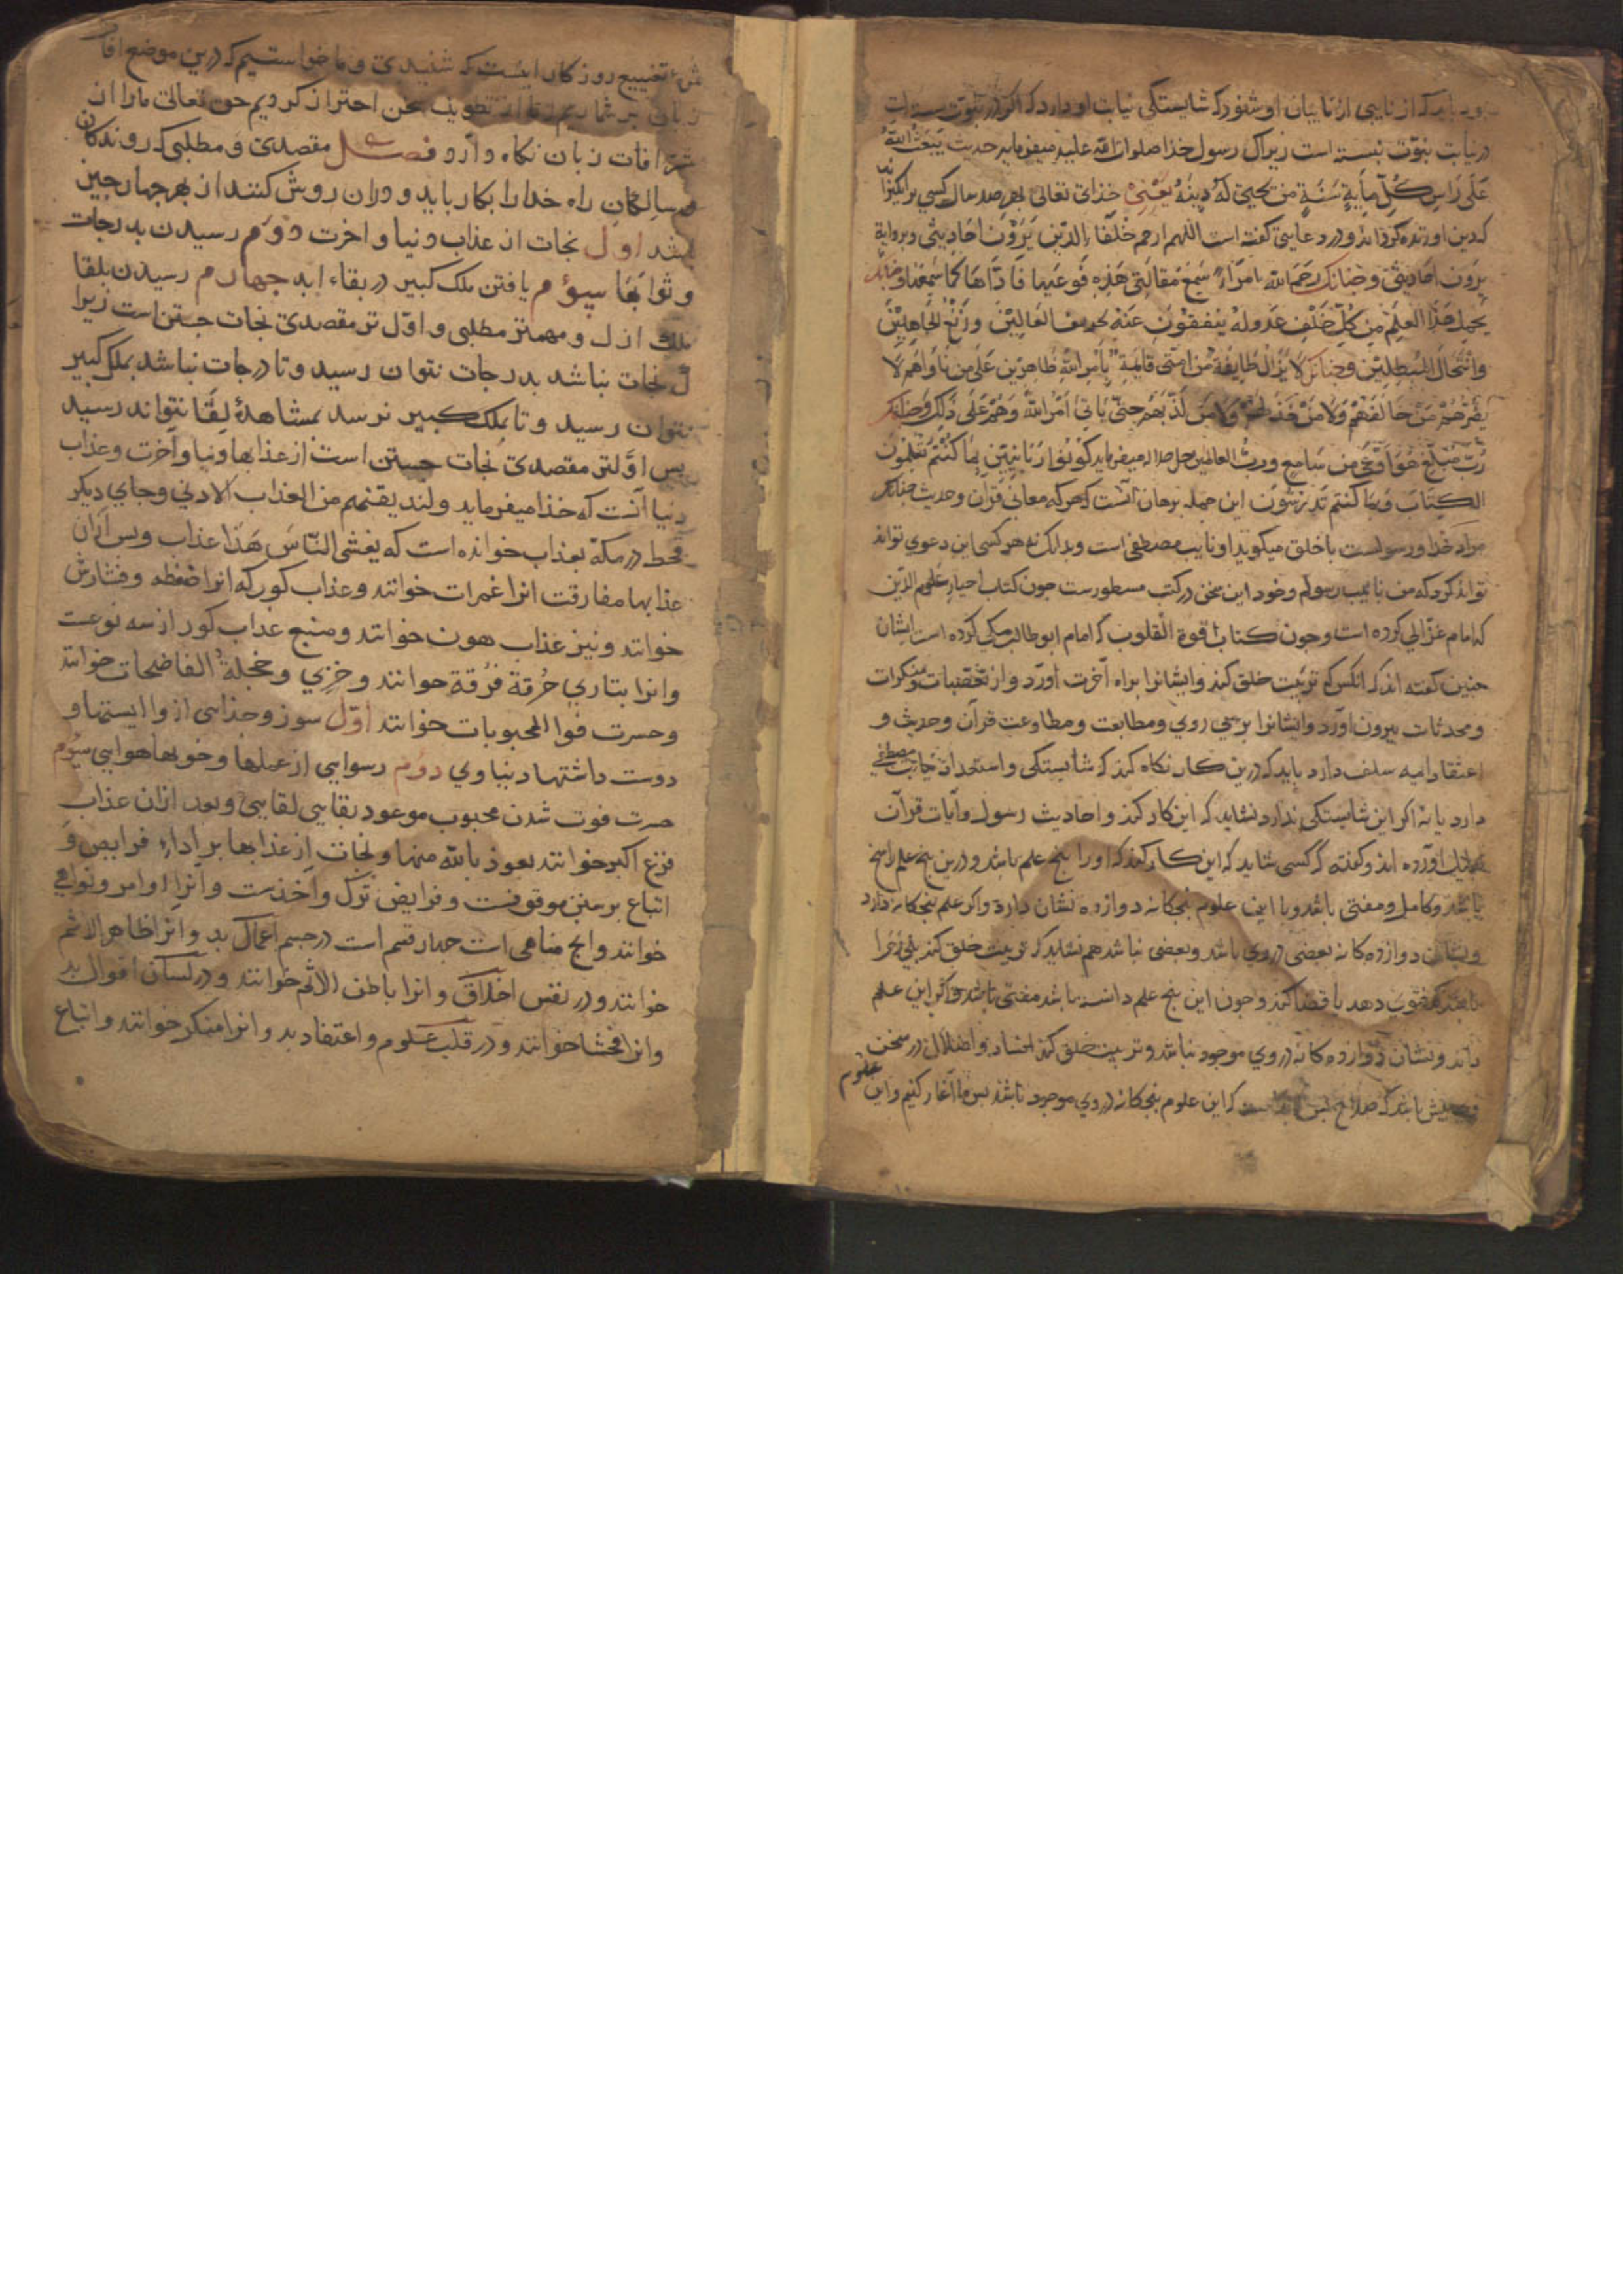 که از نایبی از نایبان او شنود که شایستگی نیابت او دارد که اگر در نبوت بسته است
در نیابت نبوت نبسته است زیراک رسول خدا صلوات الله علیه میفرماید حدیث یبعث الله
علی راس کل مایة سنة من یحیی له دینه یعنی خدای تعالی بهر صد سال کسی برانگیزاند
که دین او زنده گرداند و در دعایی گفته است اللهم ارحم خلفا الذین یروون احادیثی و بروایة
یروون احادیثی و چنانک رحم الله امراء سمع مقالتی هذه فوعیها فاداها کما سمعها و چنانک
یحمل هذا العلم من کل خلف عدوله ینفقون عنه تحریف الغالین و زیغ الجاهلین
وانتحال المبطلین و چنانک لا یزال طایفة من امتی قایمة بامر الله ظاهرین علی من ناواهم لا
یضرهم من خالفهم ولا من خذلهم ولا من کذبهم حتی یاتی امر الله وهم علی ذلک و چنانک
رب مبلغ هو اوعی من سامع و رب العالمین جل جلاله میفرماید کونوا ربانیین بما کنتم تعلمون
الکتاب وبما کنتم تدرسون این جمله برهان آنست که هرکه معانی قران و حدیث چنانک
مراد خدا و رسولست با خلق میگوید او نایب مصطفی است و بدانک نه هر کسی این دعوی تواند
تواند کرد که من نایب رسولم و خود این سخن در کتب مسطورست چون کتاب احیاء علوم الدین
که امام غزالی کرده است و چون کتاب قوة القلوب که امام ابوطالب مکی کرده است ایشان
چنین گفته اند که انکس که تربیت خلق کند و ایشانرا براه آخرت آورد و از تعصبات و منکرات
و محدثات بیرون آورد و ایشانرا بر پی روی و متابعت و مطاوعت قرآن و حدیث و
اعتقاد ایمه سلف دارد باید که درین کار نگاه کند که شایستگی و استعداد نیابت مصطفی
دارد یا نه اگر این شایستگی ندارد نشاید که این کار کند و احادیث رسول و آیات قرآن
آورده اند و گفته که کسی شاید که این کار کند که او را پنج علم باشد و درین پنج علم راسخ
باشد و کامل و مفتی باشد و با این علوم پنجگانه دوازده نشان دارد و اگر علم پنجگانه دارد
و نشان دوازده گانه بعضی در وی باشد و بعضی نباشد هم نشاید که تربیت خلق کند بلی زهرا
باشد که فتوی دهد یا قضا کند و چون این پنج علم دانسته باشد مفتی باشد و اگر این علم
داند و نشان دوازده گانه در وی موجود نباشد و تربیت خلق کند افساد و اضلال در سخن
بیش باشد که صلاح پس که این علوم پنجگانه در وی موجود باشد پس ما آغاز کنیم و این علوم
تضییع روزگار اینست که شنیدی و ما خواستیم که درین موضع افات
زبان بر شماریم اما از تطویل سخن احتراز کردیم حق تعالی ما را از
شر افات زبان نگاه دارد فصل مقصدی و مطلبی که روندگان
و سالکان راه خدا را بکار باید و دران روش کنند از بهر چهار چیز
باشد اول نجات از عذاب دنیا و اخرت دوم رسیدن بدرجات
و ثوابها سیوم یافتن ملک کبیر در بقاء ابد چهارم رسیدن بلقا
ملک ازل و مهمتر مطلبی و اول تر مقصدی نجات جستن است زیرا
تا نجات نباشد بدرجات نتوان رسید و تا درجات نباشد بملک کبیر
نتوان رسید و تا بملک کبیر نرسد بمشاهدۀ لقا نتواند رسید
پس اولتر مقصدی نجات جستن است از عذابهاء دنیا و آخرت و عذاب
دنیا آنست که خدا میفرماید ولنذیقنهم من العذاب الادنی و جای دیگر
قحط در مکه بعذاب خوانده است که یغشی الناس هذا عذاب و پس ازان
عذابها مفارقت انرا غمرات خوانند و عذاب کور که انرا ضغطه و فشارش
خوانند و نیز عذاب هون خوانند و منبع عذاب کور از سه نوعست
و انرا بتازی حرقة فرقة خوانند و خزی و خجلة الفاضحات خوانند
و حسرت فوات المحبوبات خوانند اول سوز و جدایی از وا ایستها و
دوست داشتهاء دنیاوی دوم رسوایی از عملها و خوبها هوایی سیوم
حسرت فوت شدن محبوب موعود بقایی لقایی و بعد ازان عذاب
فزع اکبر خوانند نعوذ بالله منها و نجات از عذابها بر اداء فرایض و
اتباع بر سنن موقوفست و فرایض ترک و آخذست و انرا اوامر و نواهی
خوانند و انچ مناهی است چهار قسم است در جسم اعمال بد و انرا ظاهر الاثم
خوانند و در نفس اخلاق و انرا باطن الاثم خوانند و در لسان اقوال بد
و انرا فحشا خوانند و در قلب علوم و اعتقاد بد و انرا منکر خوانند و اتباع